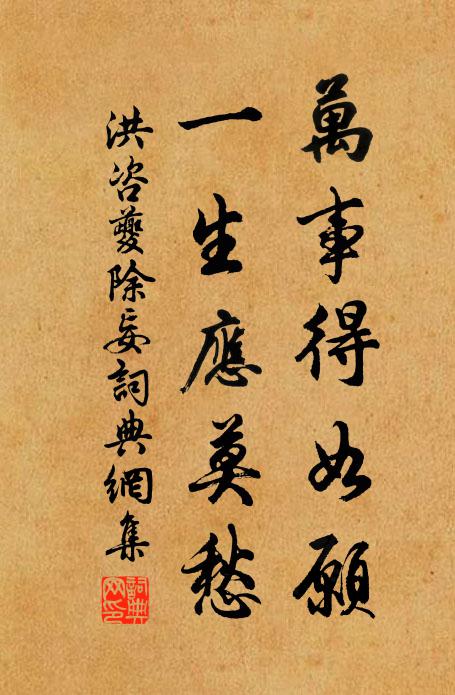 萬事得如願
一生應莫愁
洪咨夔除妄詞典網集
詞典
网印